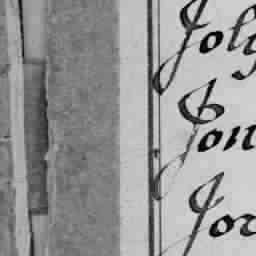 Joly
Jon
Jor